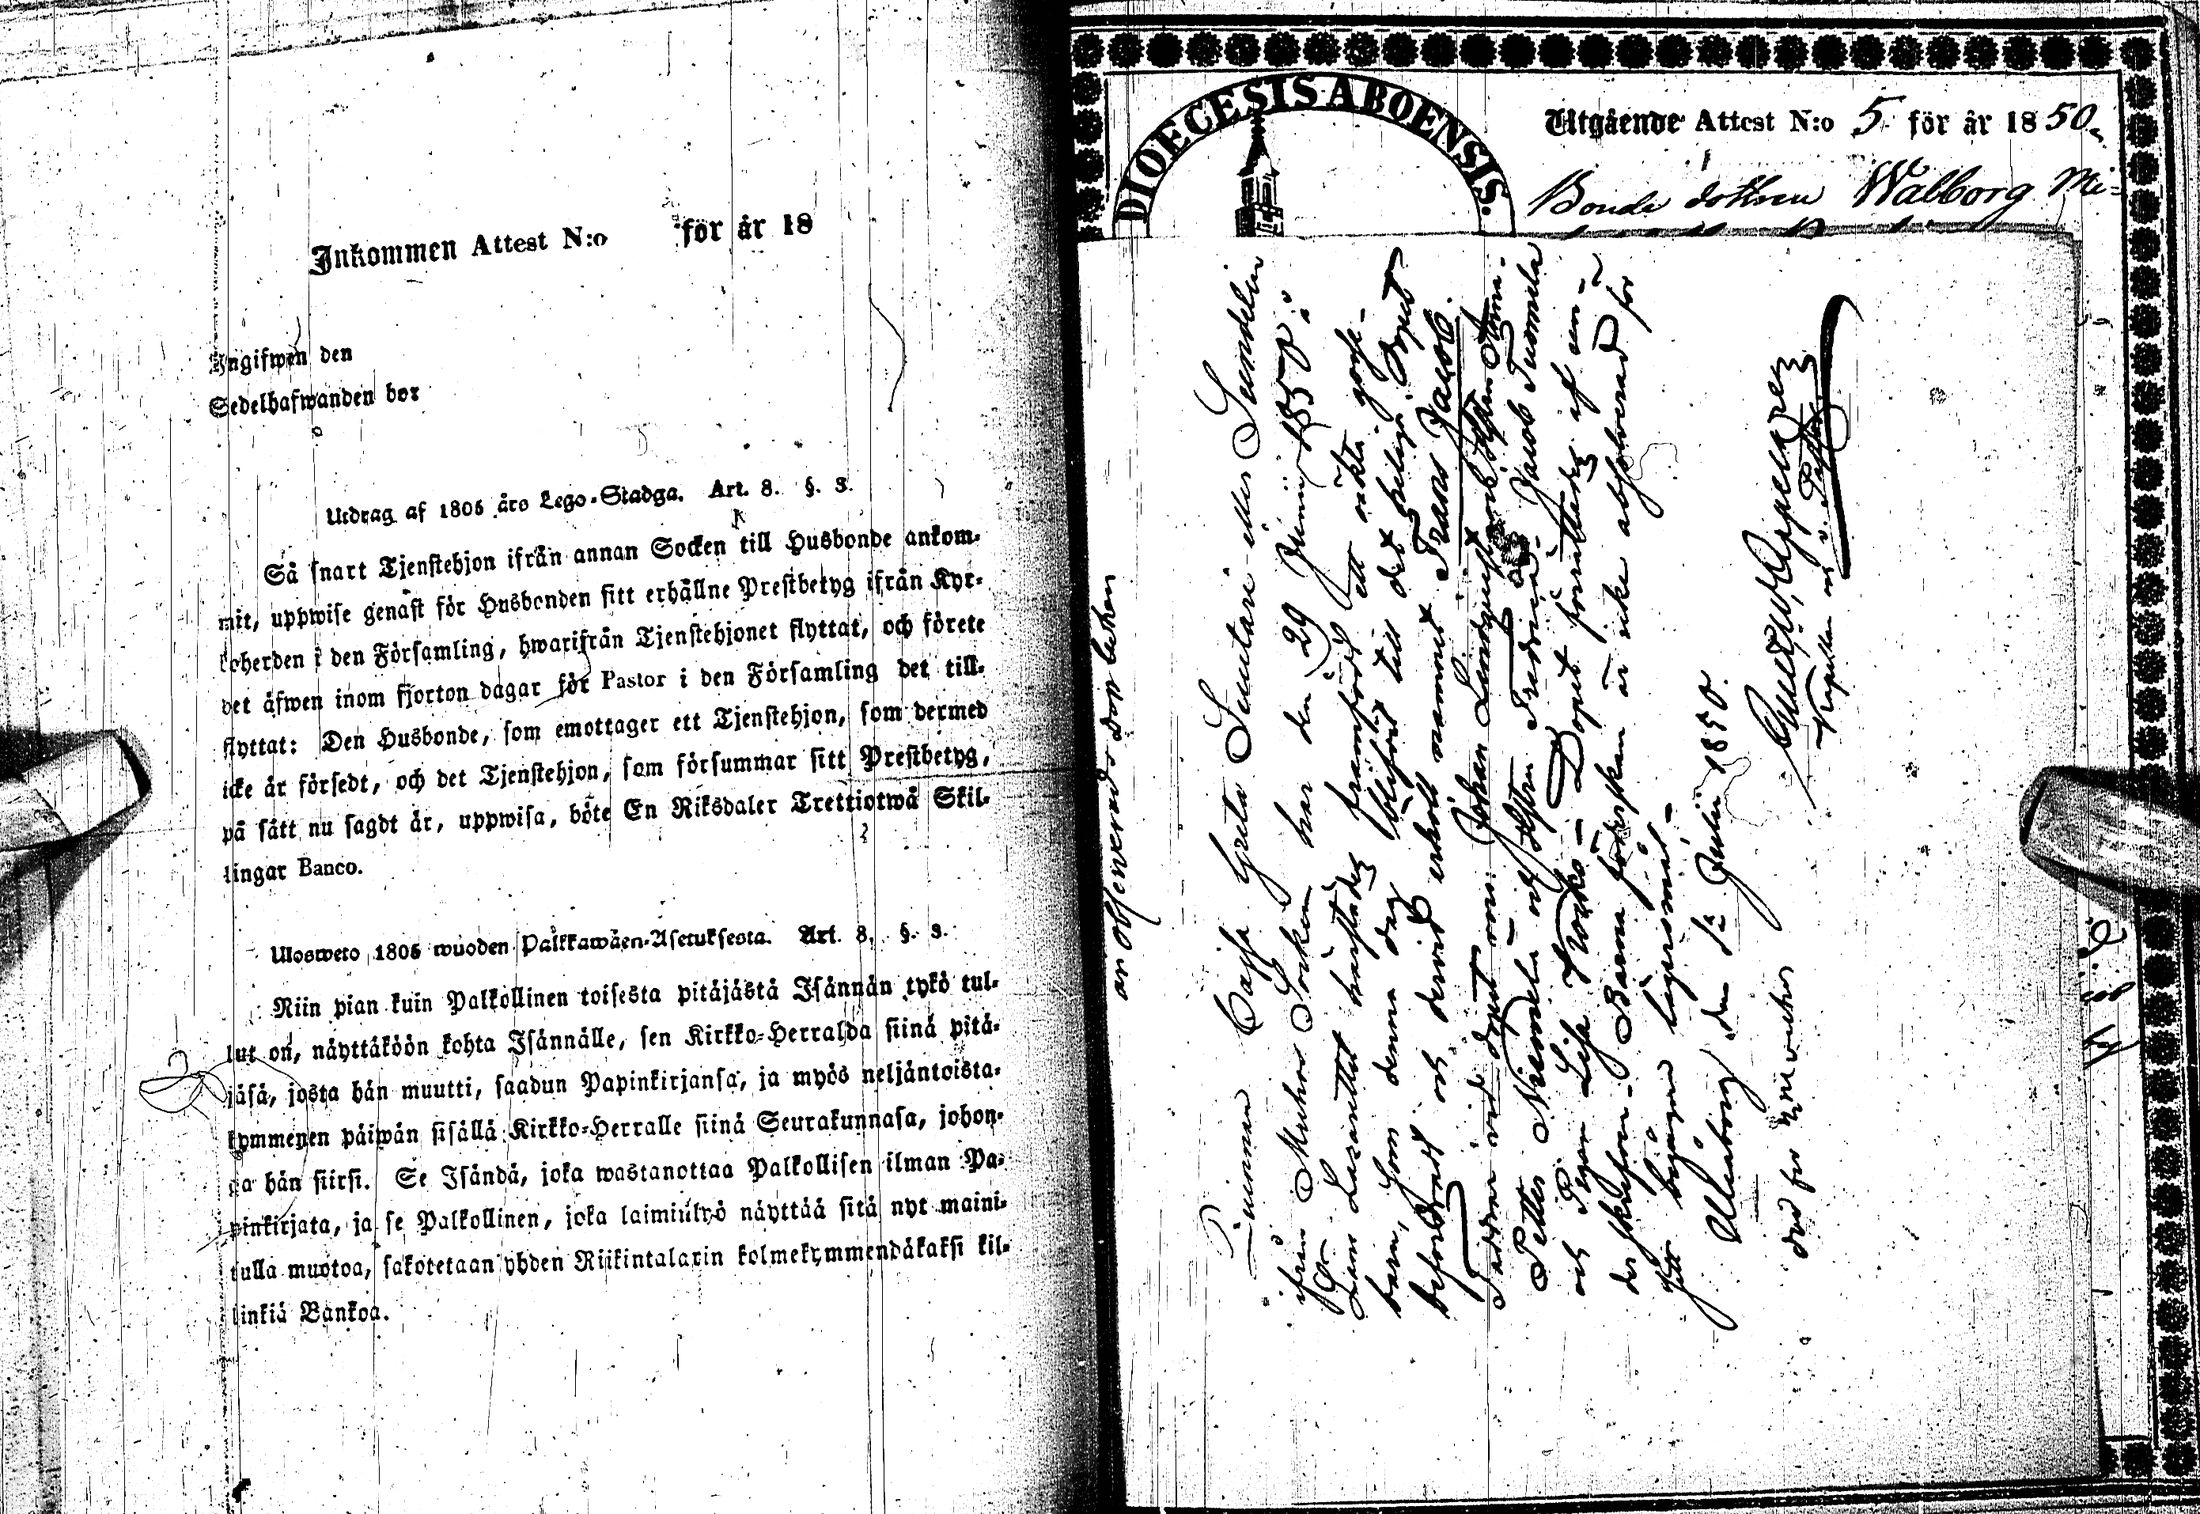 Inkommen Attest N:o för år 18
Ingifwen den
Sedelhafwanden bor
Utdrag af 1805 års Lego-Stadga. Art. 8. §. 3.
Så snart Tjenstehjon ifrån annan Socken till Husbonde ankom-
mit, uppwise genast för Husbonden sitt erhållne Prestbetyg ifrån Kyr-
koherden i den Församling, hwarifrån Tjenstehjonet flyttat, och förete
det äfwen inom fjorton dagar för Pastor i den Församling det till-
flyttat: Den Husbonde, som emottager ett Tjenstehjon, som dermed
icke är försedt, och det Tjenstehjon, som försummar sitt Prestbetyg,
på sätt nu sagdt är, uppwisa, böte En Riksdaler Trettiotwå Skil-
lingar Banco.
Ulosweto 1805 wuoden Palkkawäen-Asetuksesta. Art. 8. §. 3.
Niin pian kuin Palkollinen toisesta pitäjästä Isännän tykö tul-
lut on, näyttäköön kohta Isännälle, sen Kirkko-Herralda siinä pitä-
jäsä, josta hän muutti, saadun Papinkirjansa, ja myös neljäntoista-
kymmenen päiwän sisällä Kirkko-Herralle siinä Seurakunnasa, johon-
ga hän siirsi. Se Isändä, joka wastanottaa Palkollisen ilman Pa-
pinkirjata, ja se Palkollinen, joka laimiulyö näyttää sitä nyt maini-
tulla muotoa, sakotetaan yhden Riikintalarin kolmekymmendäkaksi kil-
linkiä Bankoa.
DIOECESIS ABOENSIS.
Utgående Attest N:o 5 för år 1850
Bonde dottren Walborg Mi-
är observerad i Dop boken
Qvinnan Cajsa Greta Suutari eller Sundelin
ifrån Muhos Socken har den 29 Junii 1850 i
Läns Lazarettet härstädes framfödt ett oäkta gosse-
barn, som denna dag blifvit till det heliga Dopet
befordradt och dervid erhållit namnet Frans Jacob.
Faddrar vid dopet voro: Johan Lindqvist
Petter Niemelä och Hustru Fredrika Jacob Tuomela
och Pigan Lisa Kokko – Dopet förrättades af un-
derskrefven. Barna föderskan är icke absolverad för
sitt begågna lägersmål.
Uleåborg den 1a Julii 1850.